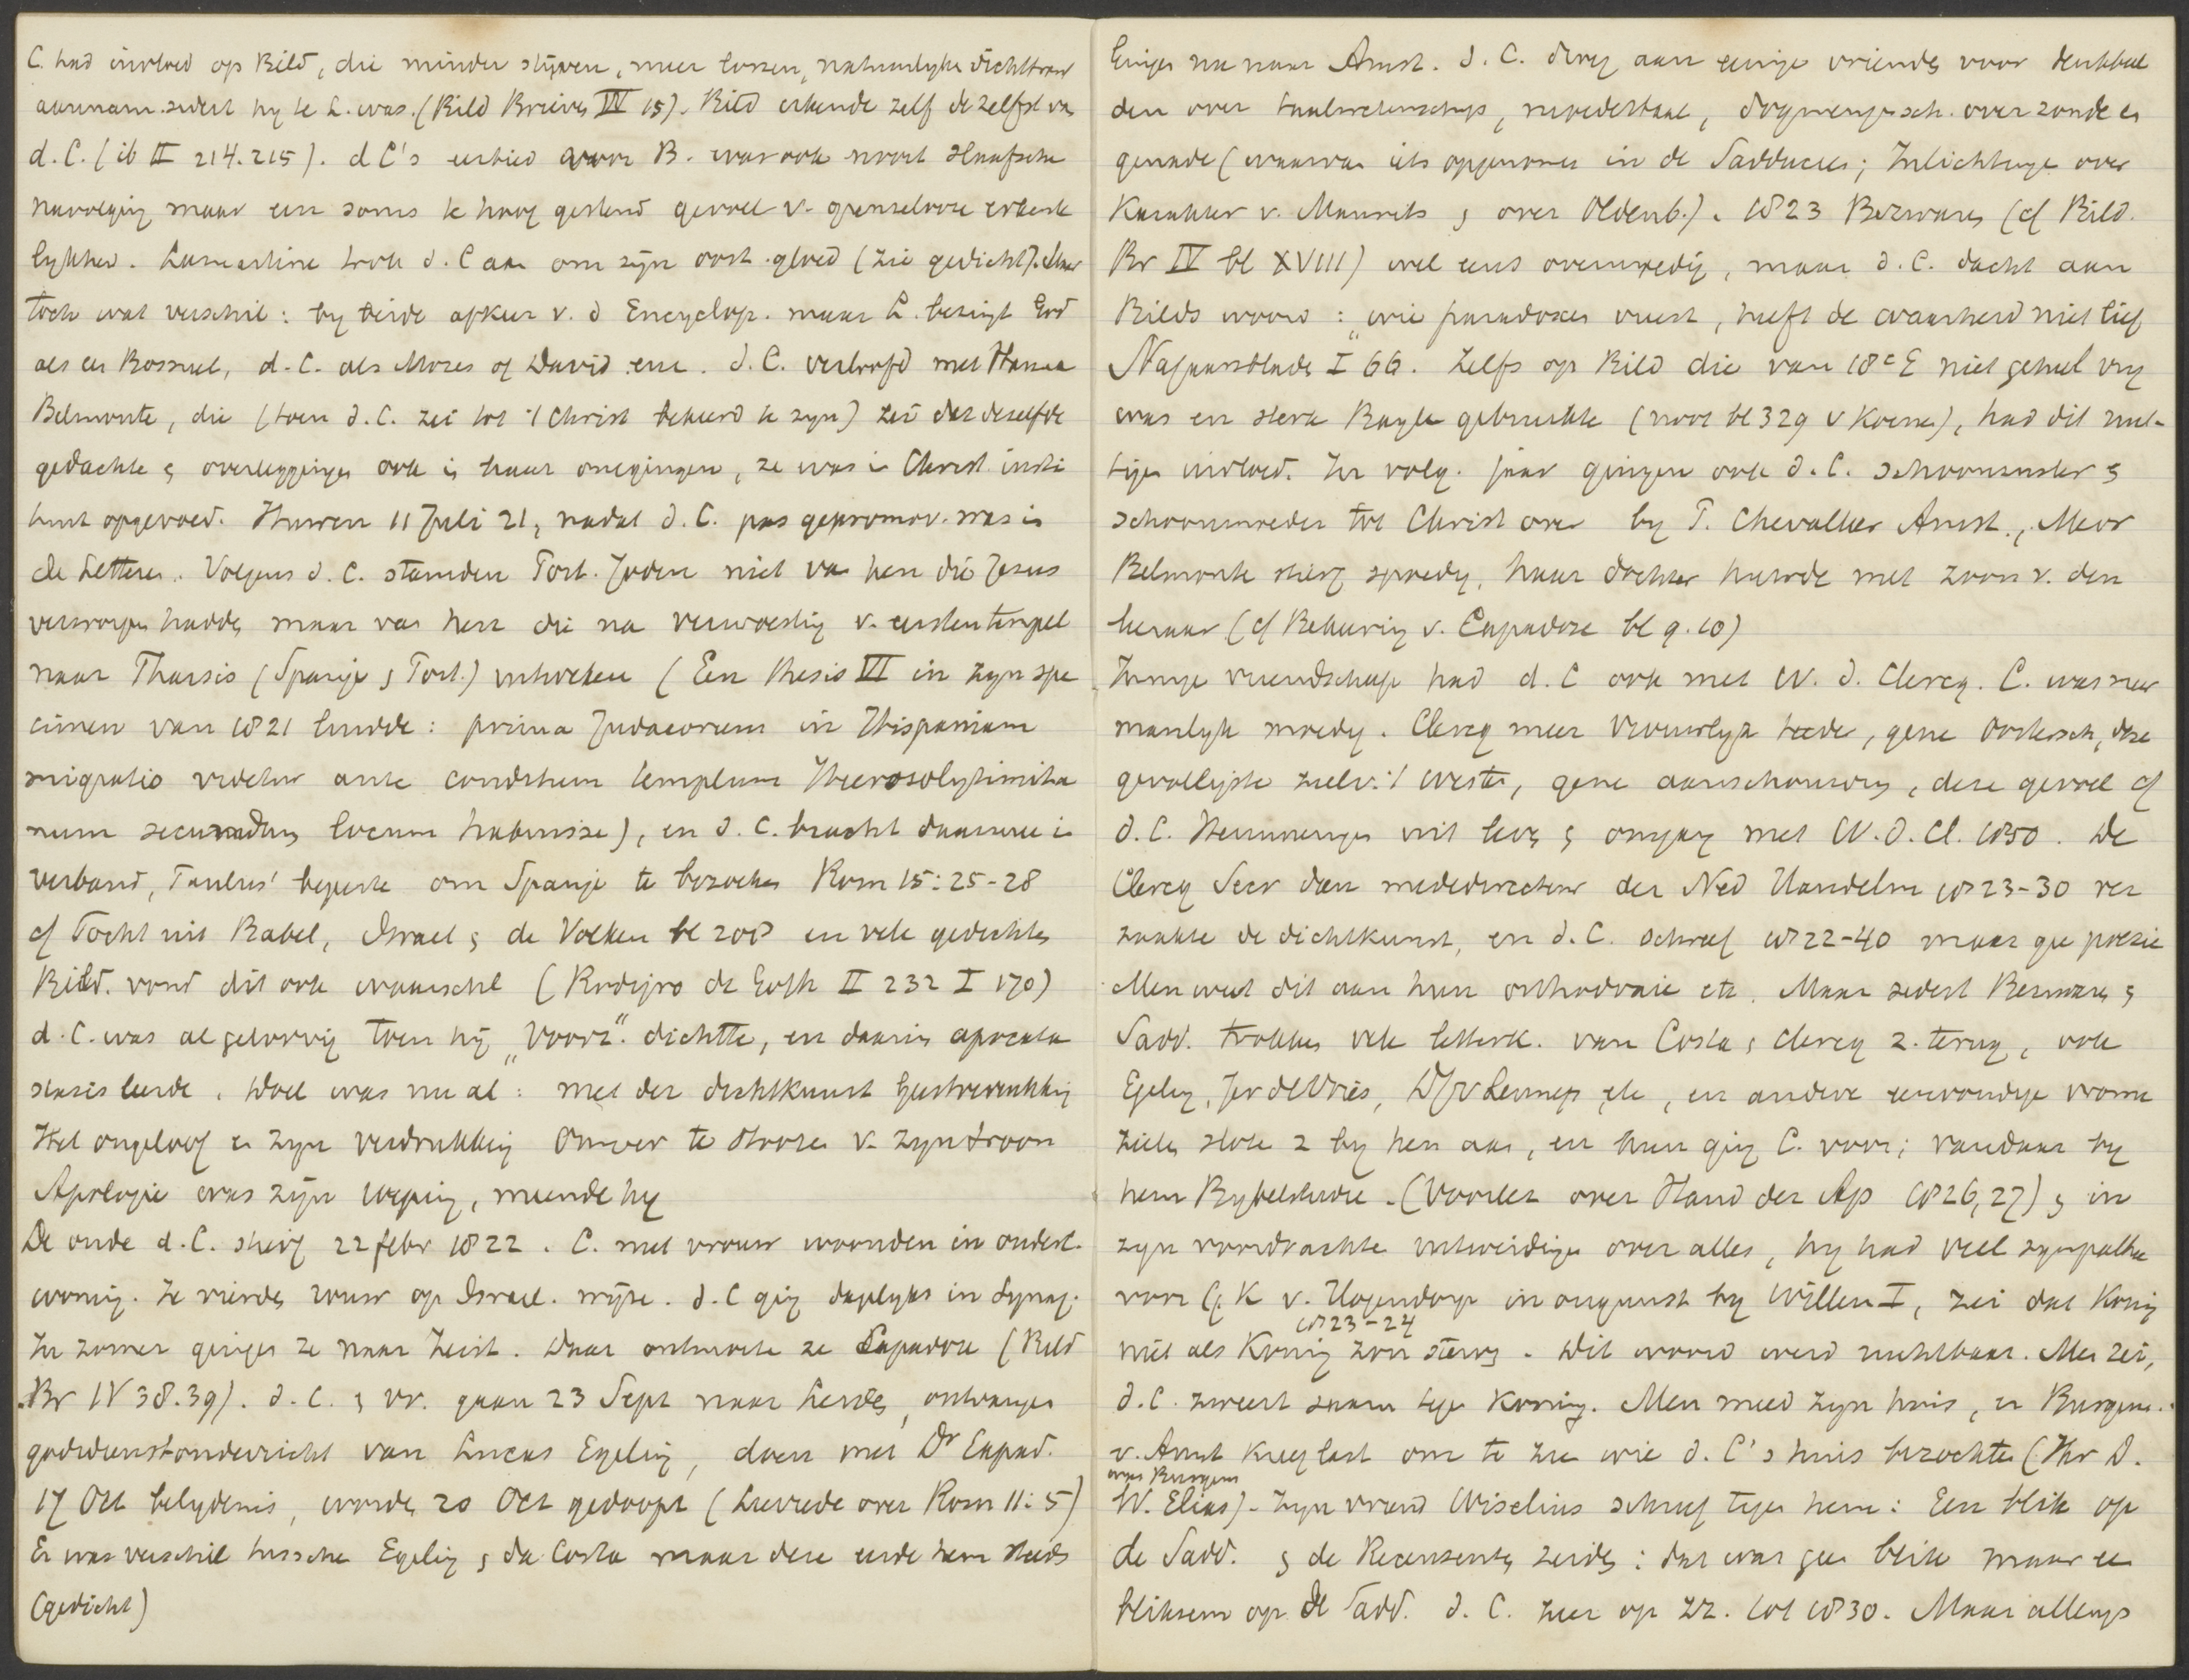 C. had invloed op Bild, die minder stijven, meer lossen, natuurlyke dichttrant
aannam sedert hy te L. was. (Bild Brieven IV 15). Bild erkende zelf de zelfst va
d.C. (ib II 214.215). d C's eerbied voor B. was ook nooit slaafsche
navolging maar een soms te hoog gestemd gevoel v. grenselooze erkente
lykheid. Lamartine trok d. C aan om zyn oost. gloed (zie gedicht). Maar
toch wat verschil: by beide afkeer v. d Encyclop. maar L. bezingt God
als een Bossuet, d. C. als Mozes of David enz. d. C. verloofd met Hanna
Belmonte, die (toen d. C. zei tot 't Christ bekeerd te zyn) zei dat deselfde
gedachte & overleggingen ook in haar omgingen, ze was in Christ. insti
tuut opgevoed. Huwen 11 Juli 21, nadat d. C. pas gepromov. was in
de Letteren. Volgens d. C. stamden Port. Joden niet va hen die Jesus
verworpen hadden maar van hen die na verwoesting v. eersten tempel
naar Tharsis (Spanje & Port.) uitweken (Een thesis VI in zyn spe
cimen van 1821 luidde: prima Judaeorum in Hispaniam
migratio videtur ante conditum templum Hierosolytimita
num secundum locum habuisse), en d. C. bracht daarmee in
verband, Paulus' begeerte om Spanje te bezoeken Rom 15:25-28
cf Tocht uit Babel, Israel & de Volken bl 208 en vele gedichten
Bild. vond dit ook waarschl (Rodrigo de Goth II 232 I 170)
d. C. was al geloovig toen hij "Voorz". dichtte, en daarin apocata
stasis leerde. Doel was nu al: met der dichtkunst geestverrukking
Het ongeloof en zyn verdrukking Omver te stooten v. zyn troon
Apologie was zijn roeping, meende hy
De oude d. C. stierf 22 febr 1822. C. met vrouw woonden in ouderl.
woning. Ze vierden trouw op Israel. wijze. d. C ging dagelyks in Synag.
In zomer gingen ze naar Zeist. Daar ontmoette ze Capadose (Bild
Br IV 38.39). d. C. & vr. gaan 23 Sept naar Leiden, ontvangen
godsdienstonderricht van Lucas Egeling, doen met Dr Capad.
17 Oct belydenis, worden 20 Oct gedoopt (Leerrede over Rom 11:5)
Er was verschil tusschen Egeling & da Costa maar deze eerde hem steeds
(gedicht)
Enigen na naar Amst. d. C. droeg aan eenige vrienden voor denkbeel
den over taalwetenschap, wysbegeerte, dogmengesch. over zonde en
genade (waarvan iets opgenomen in de Sadduceen; Inlichtingen over
Karakter v. Maurits & over Oldenb.). 1823 Bezwaren (cf Bild.
Br IV bl XVIII) wel eens overmoedig, maar d. C. dacht aan
Bilds woord: "wie paradoxen vreest, heeft de waarheid niet lief
Najaarsbladen I 66. Zelfs op Bild die van 18e E niet geheel vry
was en sterk Bayle gebruikte (noot bl 329 v Koenen), had dit nut-
tigen invloed. In volg. jaar gingen ook d. C. schoonzuster &
schoonmoeder tot Christ over by P. Chevallier Amst., Mevr
Belmonte stierf spoedig, haar dochter huwde met zoon v. den
leeraar (cf Bekeering v. Capadose bl 9.10)
Innige vriendschap had d. C ook met W. d. Clercq. C. was meer
manlyk moedig. Clercq meer vrouwelyk teeder, gene Oostersch, deze
gevoeligste ziel v. 't westen, gene aanschouwing, deze gevoel cf
d. C. Herinneringen uit leven & omgang met W. d. Cl. 1850. De
Clercq Secr dan mededirecteur der Ned Handelm 1823-30 ver
zaakte de dichtkunst, en d. C. schreef 1822-40 maar gee poezie
Men weet dit aan hun orthodoxie etc. Maar sedert Bezwaren &
Sadd. trokken vele letterk. van Costa & Clercq z. terug, ook
Egeling, Jer de Vries, D J v Lennep etc, en andere eenvoudige vrome
zielen sloten z by hen aan, en hun ging C. voor; vandaar by
hem Bybelstudie. (Voorlez over Hand der Ap 1826,27) & in
zyn voordrachten uitweidingen over alles, hy had veel sympathie
voor G. K v. Hogendorp in ongunst by Willem I, zei dat Koning
1823-24
niet als Koning zou sterven. Dit woord werd ruchtbaar. Men zei,
d. C. zweert saam tegen Koning. Men meed zyn huis, en Burgem.
v. Amst kreeg last om te zien wie d. C's huis bezochten (Hr D.
was Burgem
W. Elias). Zyn vriend Wiselius schreef tegen hem: Een blik op
de Sadd. & de Recensenten zeiden: dat was gee blik maar ee
bliksem op de Sadd. d. C. zeer op zz. tot 1830. Maar allengs